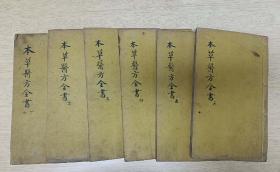 本草醫方全書
本草醫方全書
本草醫方全書
本草醫方全書
本草醫方全書
本草醫方全書